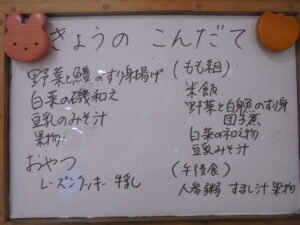 きょうの こんだて
野菜と鱧のすり身揚げ
白菜の磯和え
豆乳のみそ汁
果物
おやつ
レーズンクッキー 牛乳
(もも組)
米飯
野菜と白身魚のすり身
団子煮
白菜の和え物
豆乳みそ汁
(午後食)
人参粥 すまし汁 果物